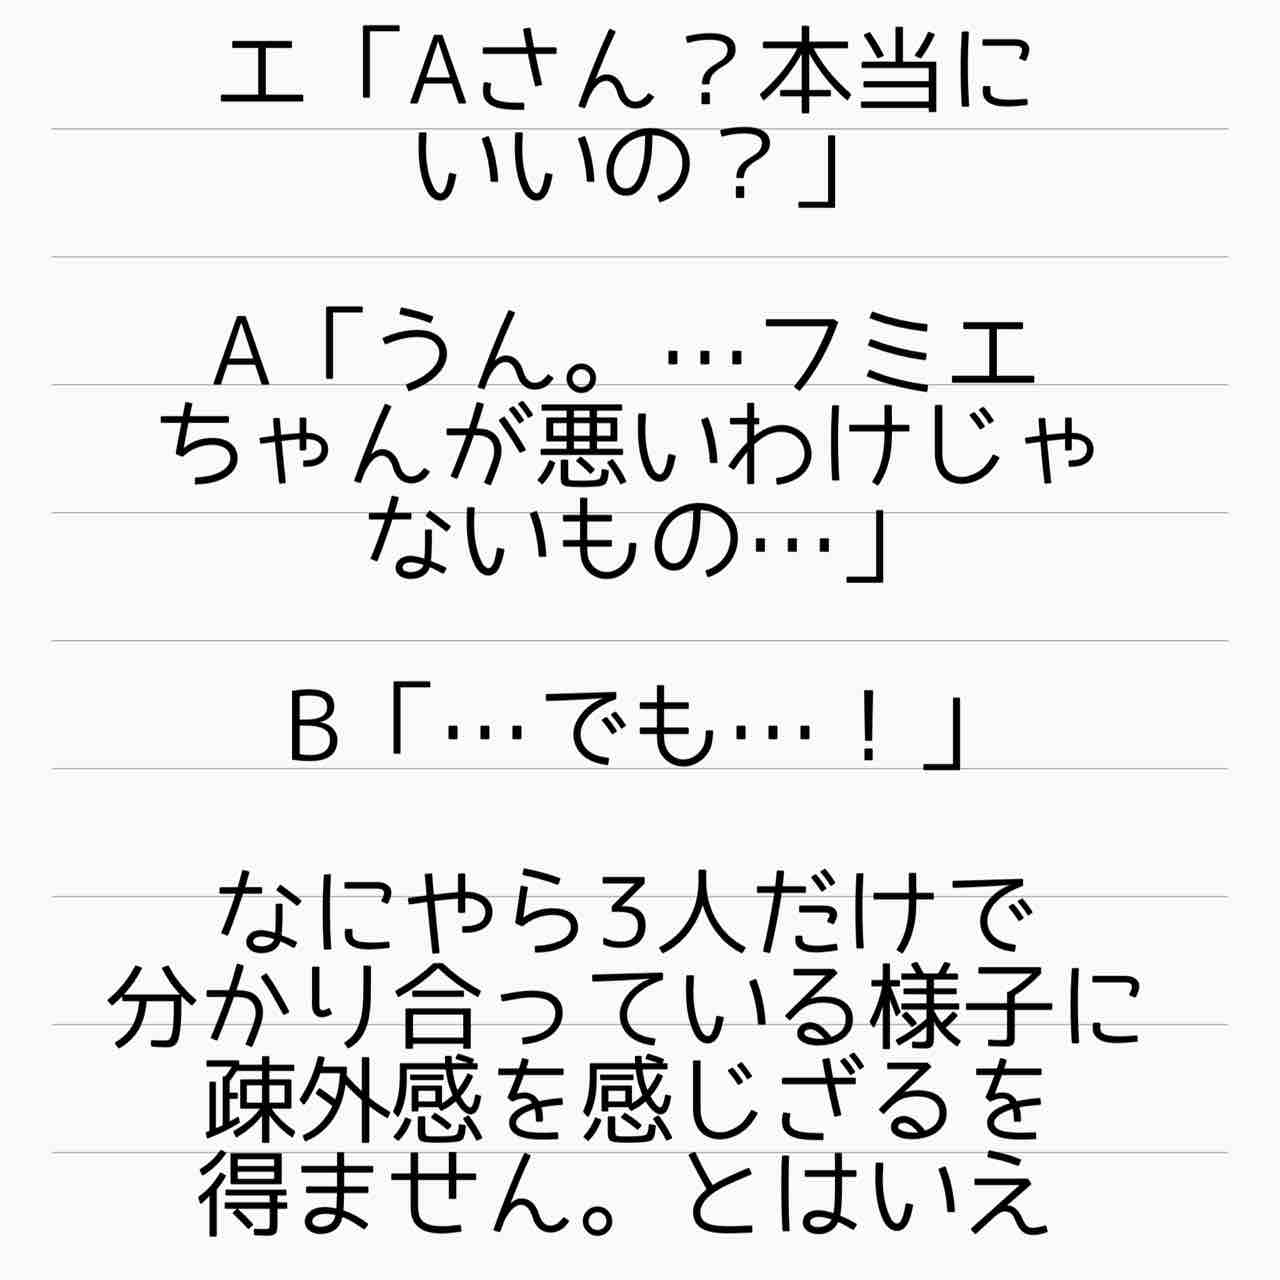 エ「Aさん？本当に
いいの？」
A「うん。…フミエ
ちゃんが悪いわけじゃ
ないもの…」
B「…でも…！」
なにやら3人だけで
分かり合っている様子に
疎外感を感じざるを
得ません。とはいえ